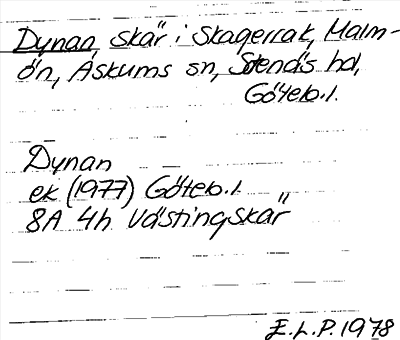 Dynan, skär i Skagerrak, Malm-
ön, Askums sn, Stenäs hd,
Göteb. l.
Dynan
ek (1977) Göteb. l.
8A 4h Västingskär
E.L.P. 1978